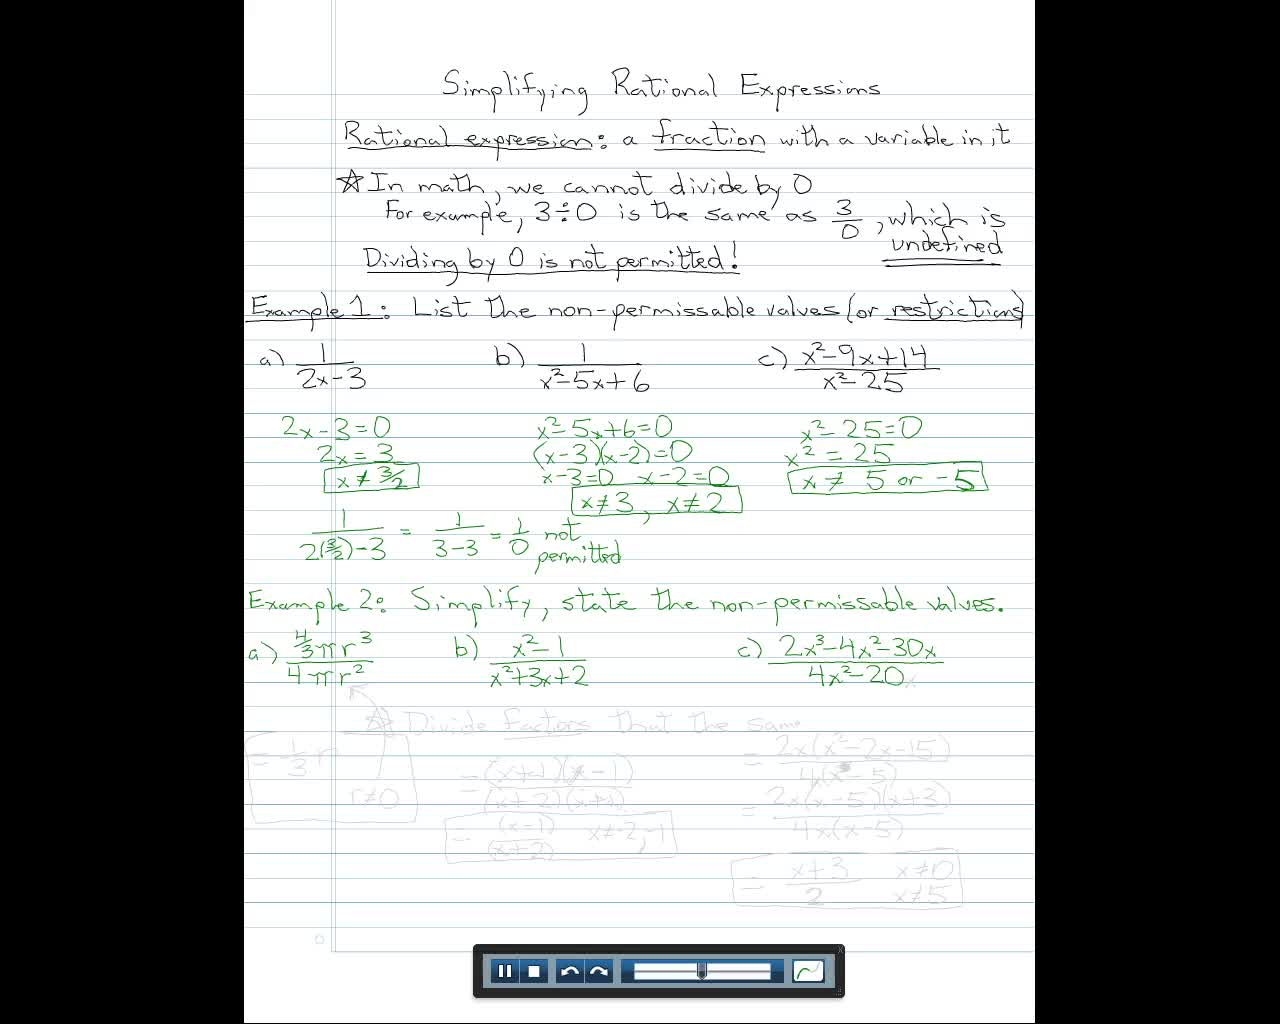 Simplifying Rational Expressions
Rational expression: a fraction with a variable in it
☆ In math, we cannot divide by 0
For example, 3÷0 is the same as 3/0, which is undefined
Dividing by 0 is not permitted!
Example 1: List the non-permissable values (or restrictions)
a) 1/(2x-3) b) 1/(x²-5x+6) c) (x²-9x+14)/(x²-25)
2x-3=0 x²-5x+6=0 x²-25=0
2x=3 (x-3)(x-2)=0 x²=25
x≠3/2 x-3=0 x-2=0 x≠ 5 or -5
x≠3, x≠2
1/(2(3/2)-3) = 1/(3-3) = 1/0 not permitted
Example 2: Simplify, state the non-permissable values.
a) (4/3πr³)/(4πr²) b) (x²-1)/(x²+3x+2) c) (2x³-4x²-30x)/(4x²-20
☆ Divide factors that the same
= 1/3 r = (x+1)(x-1)/(x+2)(x+1) = 2x(x²-2x-15)/4(x²-5)
r≠0 = (x-1)/(x+2) x≠-2,-1 = 2x(x-5)(x+3)/4x(x-5)
= (x+3)/2 x≠0 x≠5